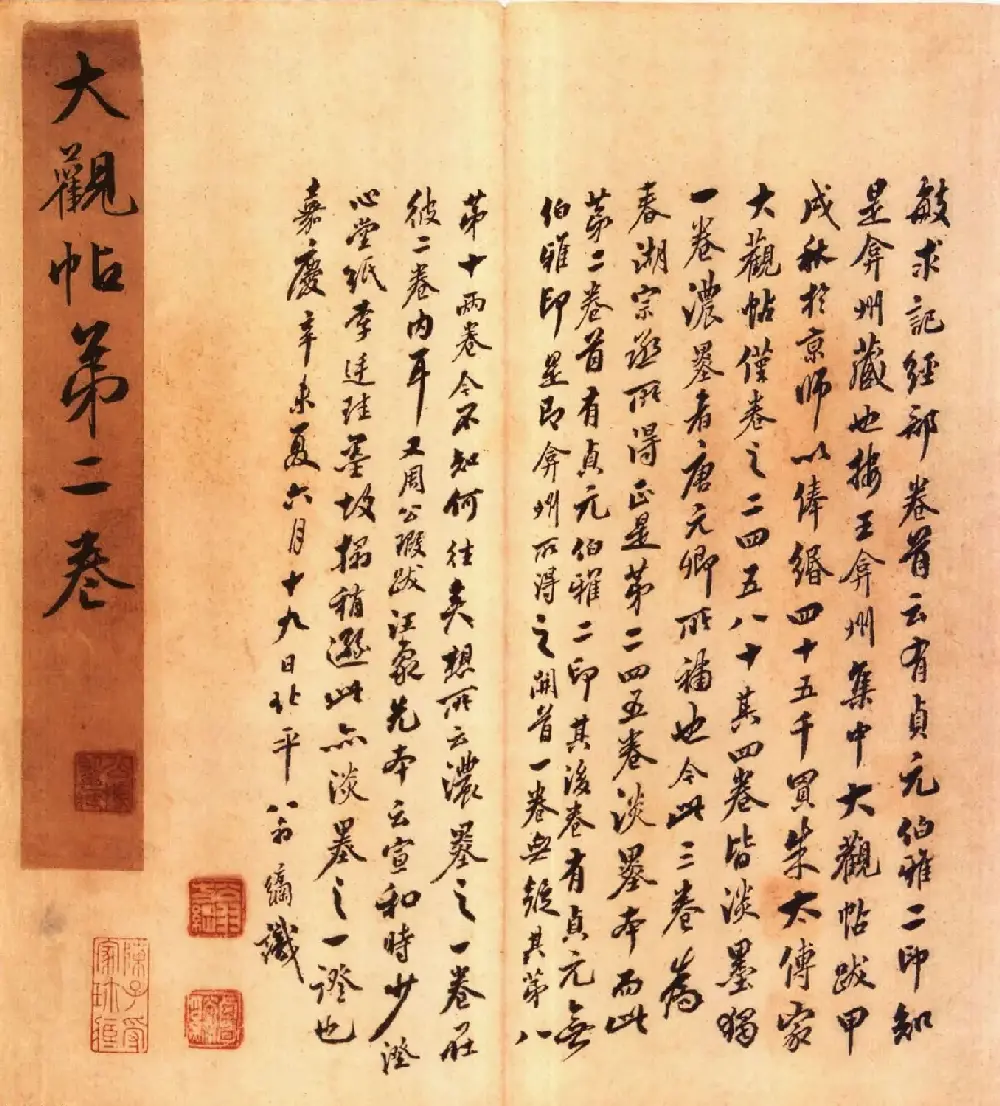 敏求記經部卷首云有貞元伯雅二印知
是弇州藏也按王弇州集中大觀帖跋甲
戌秋於京師以俸緡四十五千買朱太傅家
大觀帖僅卷之二四五八十其四卷皆淡墨獨
一卷濃墨者唐元卿所補也今此三卷為
春湖宗丞所得正是第二四五卷淡墨本而此
第二卷首有貞元伯雅二印其後卷有貞元無
伯雅印是即弇州所得之開首一卷無疑其第八
第十兩卷今不知何往矣想所云濃墨之一卷在
彼二卷內耳又周公瑕跋汪象先本云宣和時少澄
心堂紙李廷珪墨故搨稍遜此亦淡墨之一證也
嘉慶辛未夏六月十九日北平八翁 識
大觀帖第二卷